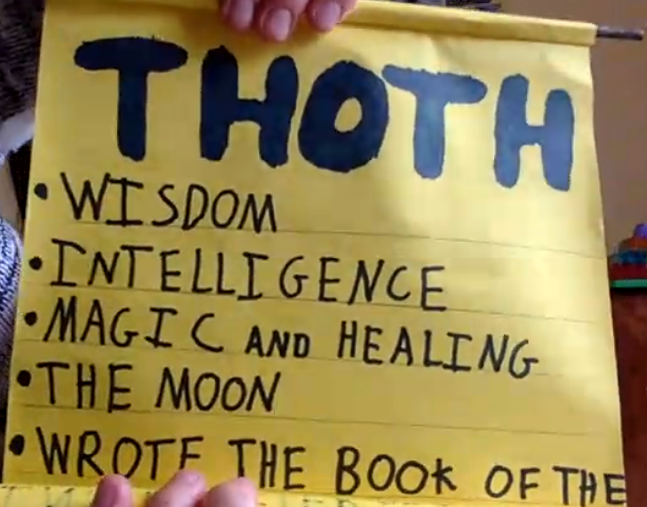 THOTH
• WISDOM
• INTELLIGENCE
• MAGIC AND HEALING
• THE MOON
• WROTE THE BOOK OF THE